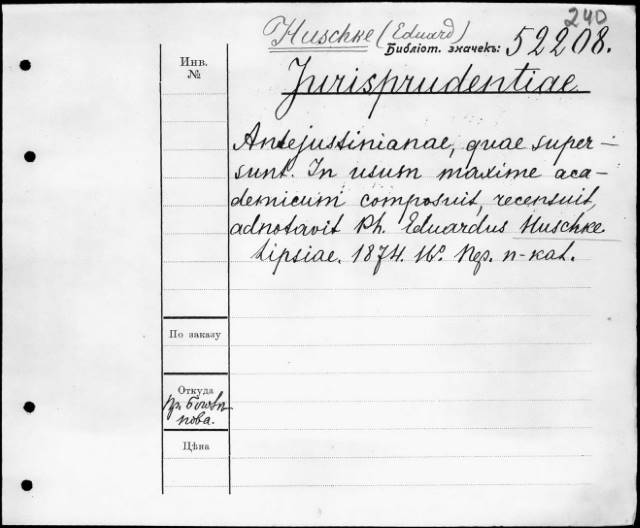 240
Huschke (Eduard)
Библіот. значекъ: 52208.
Инв.
№
Jurisprudentiae
Antejustinianae, quae super-
sunt. In usum maxime aca-
demicum composuit, recensuit,
adnotavit Ph. Eduardus Huschke
Lipsiae. 1874. 16º.
По заказу
Откуда
Цѣна